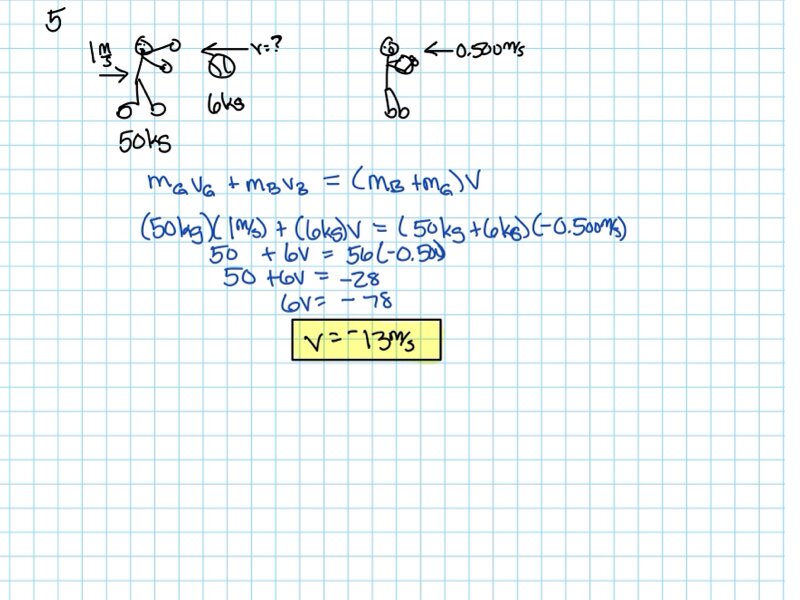 5
1 m/s
v=?
0.500m/s
6kg
50kg
mGvG + mBvB = (mB + mG)V
(50kg)(1m/s) + (6kg)V = (50kg + 6kg)(-0.500m/s)
50 + 6V = 56(-0.50)
50 + 6V = -28
6V = -78
V = -13m/s